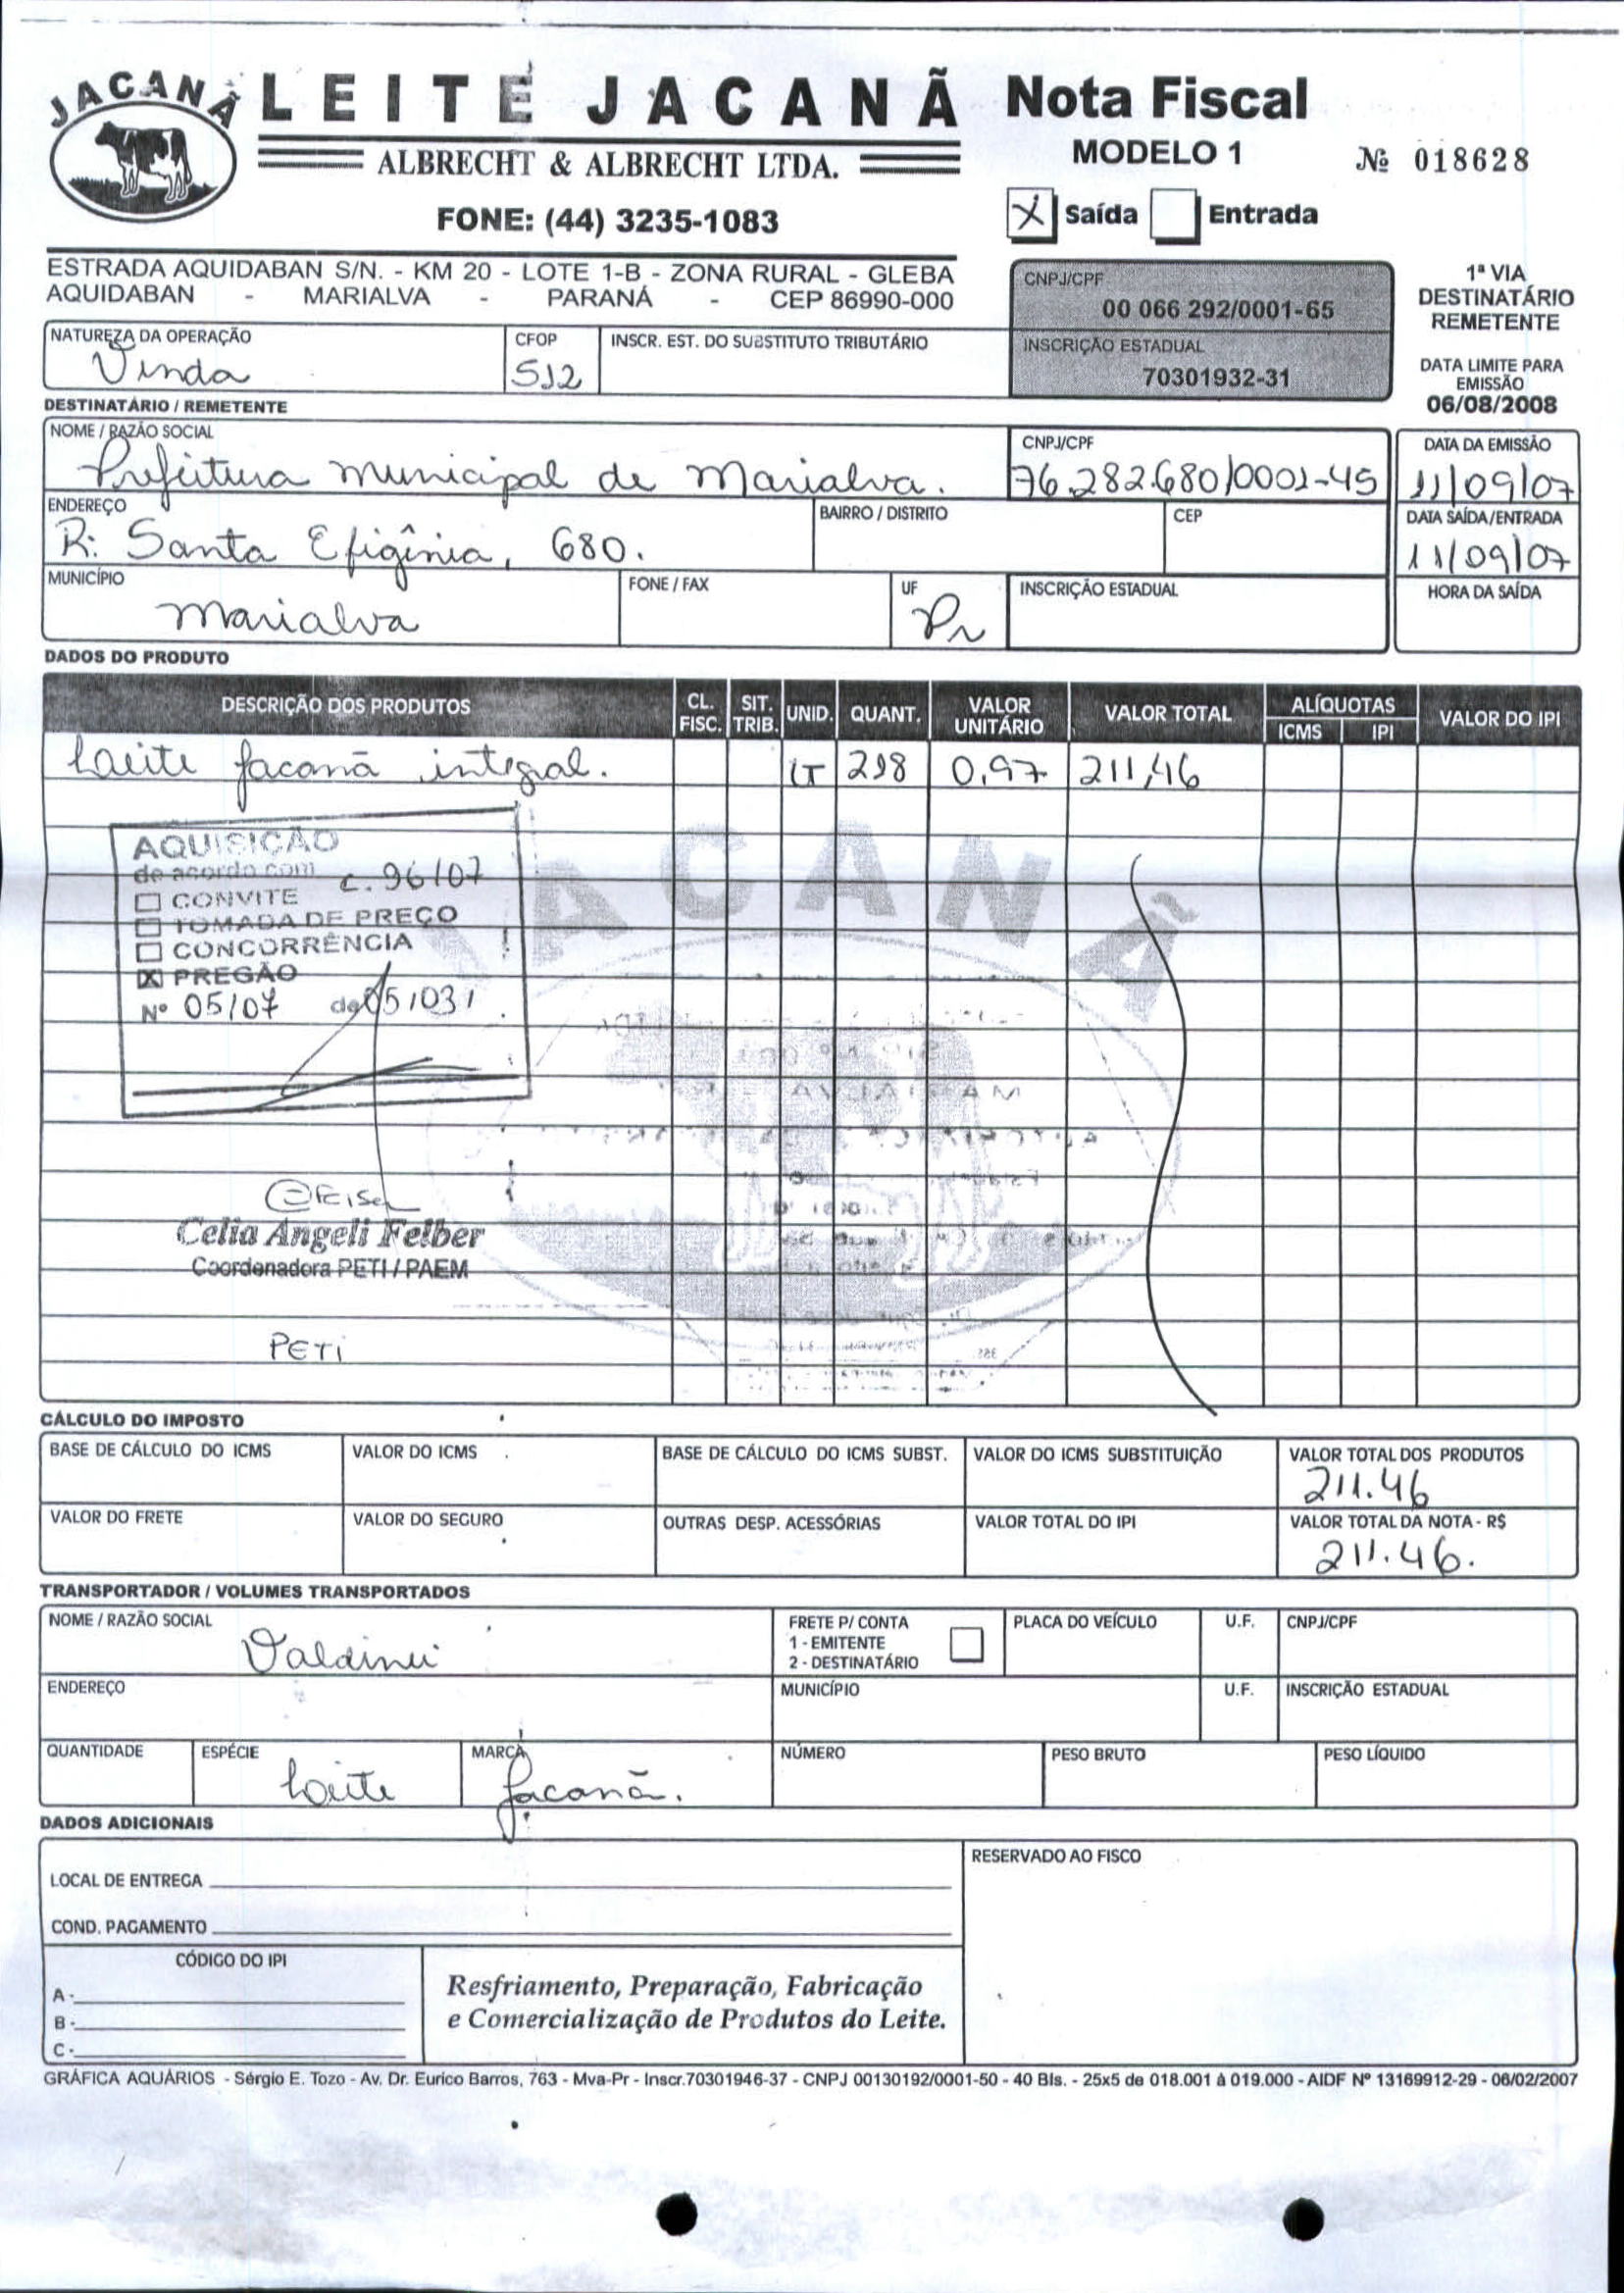 JACANÃ
LEITE JACANÃ
ALBRECHT & ALBRECHT LTDA.
FONE: (44) 3235-1083
Nota Fiscal
MODELO 1
Nº 018628
X Saída Entrada
ESTRADA AQUIDABAN S/N. - KM 20 - LOTE 1-B - ZONA RURAL - GLEBA
AQUIDABAN - MARIALVA - PARANÁ - CEP 86990-000
CNPJ/CPF
00 066 292/0001-65
INSCRIÇÃO ESTADUAL
70301932-31
1ª VIA
DESTINATÁRIO
REMETENTE
DATA LIMITE PARA
EMISSÃO
06/08/2008
NATUREZA DA OPERAÇÃO CFOP INSCR. EST. DO SUBSTITUTO TRIBUTÁRIO
Venda 512
DESTINATÁRIO / REMETENTE
NOME / RAZÃO SOCIAL CNPJ/CPF DATA DA EMISSÃO
Prefeitura municipal de Marialva. 76.282.680/0001-45 11/09/07
ENDEREÇO BAIRRO / DISTRITO CEP DATA SAÍDA/ENTRADA
R: Santa Efigênia, 680. 11/09/07
MUNICÍPIO FONE / FAX UF INSCRIÇÃO ESTADUAL HORA DA SAÍDA
Marialva Pr
DADOS DO PRODUTO
DESCRIÇÃO DOS PRODUTOS CL. FISC. SIT. TRIB. UNID. QUANT. VALOR UNITÁRIO VALOR TOTAL ALÍQUOTAS ICMS IPI VALOR DO IPI
Leite Jacanã integral. LT 218 0,97 211,46
AQUISIÇÃO
de acordo com c. 96/07
CONVITE
TOMADA DE PREÇO
CONCORRÊNCIA
X PREGÃO
Nº 05/07 de 05/03/
JACANÃ
Celia Angeli Felber
Coordenadora PETI / PAEM
PETI
CÁLCULO DO IMPOSTO
BASE DE CÁLCULO DO ICMS VALOR DO ICMS BASE DE CÁLCULO DO ICMS SUBST. VALOR DO ICMS SUBSTITUIÇÃO VALOR TOTAL DOS PRODUTOS
211.46
VALOR DO FRETE VALOR DO SEGURO OUTRAS DESP. ACESSÓRIAS VALOR TOTAL DO IPI VALOR TOTAL DA NOTA - R$
211.46.
TRANSPORTADOR / VOLUMES TRANSPORTADOS
NOME / RAZÃO SOCIAL FRETE P/ CONTA PLACA DO VEÍCULO U.F. CNPJ/CPF
1 - EMITENTE
2 - DESTINATÁRIO
Valdinei
ENDEREÇO MUNICÍPIO U.F. INSCRIÇÃO ESTADUAL
QUANTIDADE ESPÉCIE MARCA NÚMERO PESO BRUTO PESO LÍQUIDO
Leite Jacanã.
DADOS ADICIONAIS
RESERVADO AO FISCO
LOCAL DE ENTREGA
COND. PAGAMENTO
CÓDIGO DO IPI
A -
B -
C -
Resfriamento, Preparação, Fabricação
e Comercialização de Produtos do Leite.
GRÁFICA AQUÁRIOS - Sérgio E. Tozo - Av. Dr. Eurico Barros, 763 - Mva-Pr - Inscr.70301946-37 - CNPJ 00130192/0001-50 - 40 Bls. - 25x5 de 018.001 à 019.000 - AIDF Nº 13169912-29 - 06/02/2007